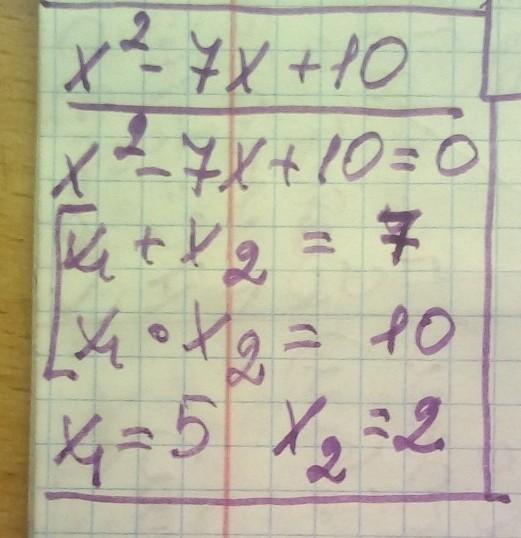 x² - 7x + 10
x² - 7x + 10 = 0
[x₁ + x₂ = 7
x₁ • x₂ = 10
x₁ = 5 x₂ = 2